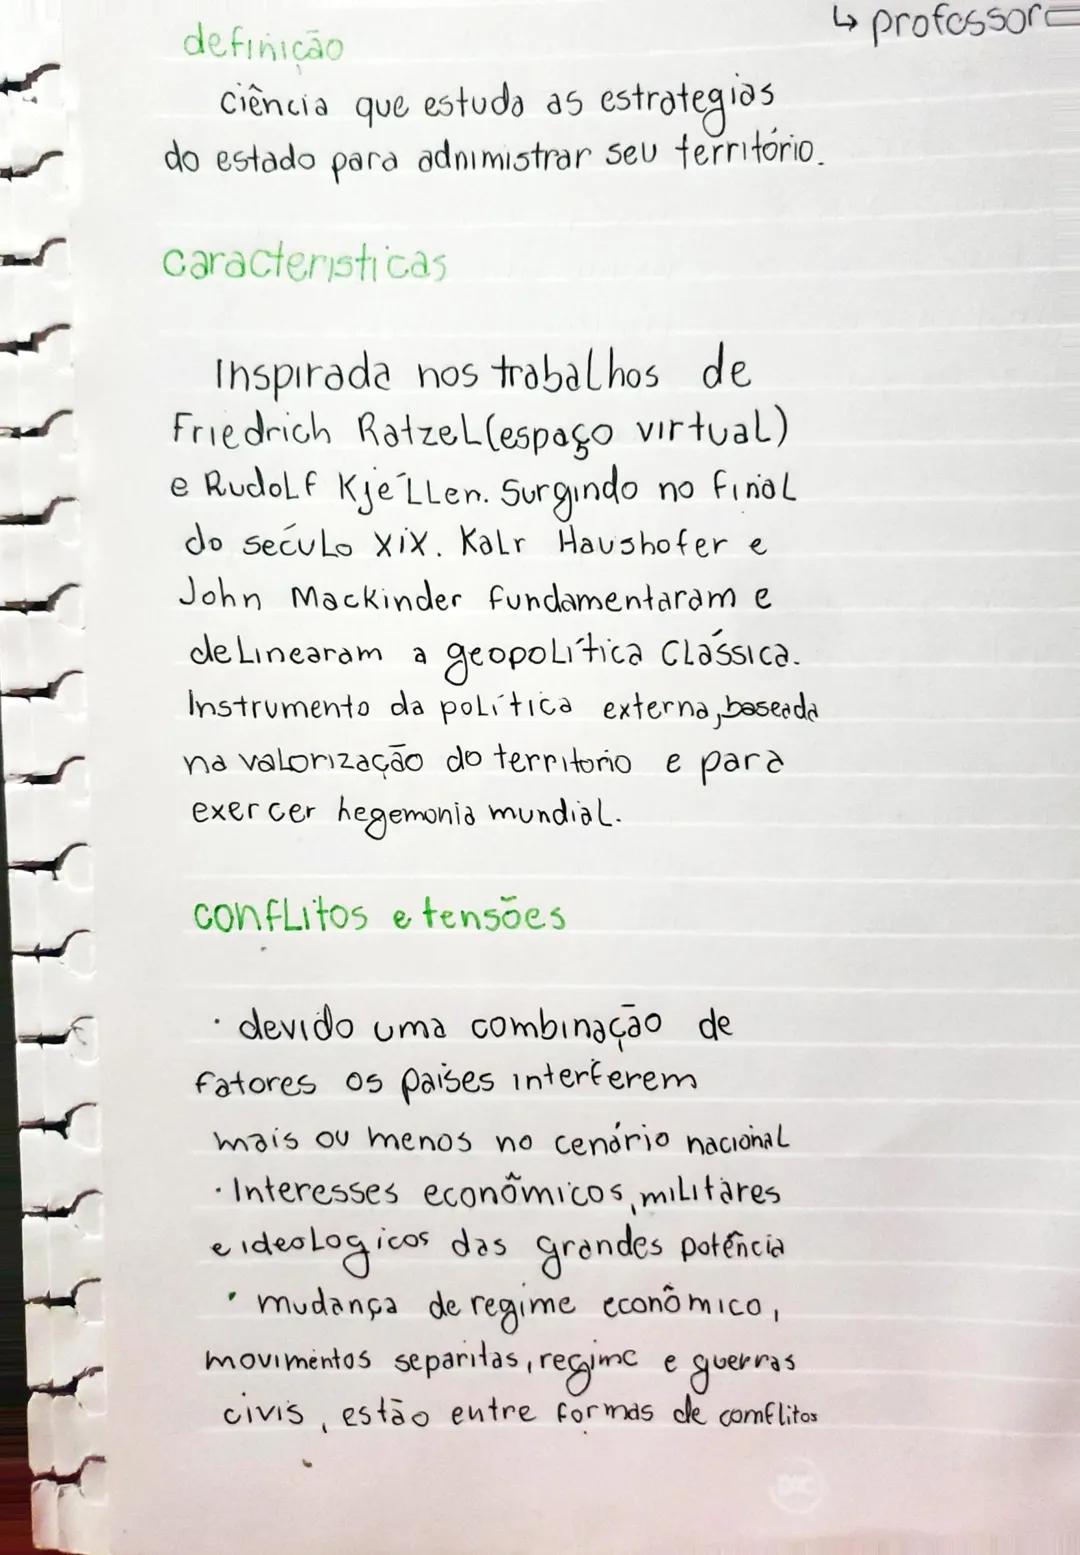 ↳ professor
definição
ciência que estuda as estrategias
do estado para adnimistrar seu território.
caracteristicas
Inspirada nos trabalhos de
Friedrich Ratzel(espaço virtual)
e Rudolf Kjéllen. Surgindo no final
do século XIX. Kalr Haushofer e
John Mackinder fundamentaram e
delinearam a geopolítica Clássica.
Instrumento da política externa, baseada
na valorização do territorio e para
exercer hegemonia mundial.
conflitos e tensões
· devido uma combinação de
fatores os países interferem
mais ou menos no cenário nacional
· Interesses econômicos, militares
e ideologicos das grandes potência
· mudança de regime econômico,
movimentos separitas, regime e guerras
civis, estão entre formas de comflitos
DAC